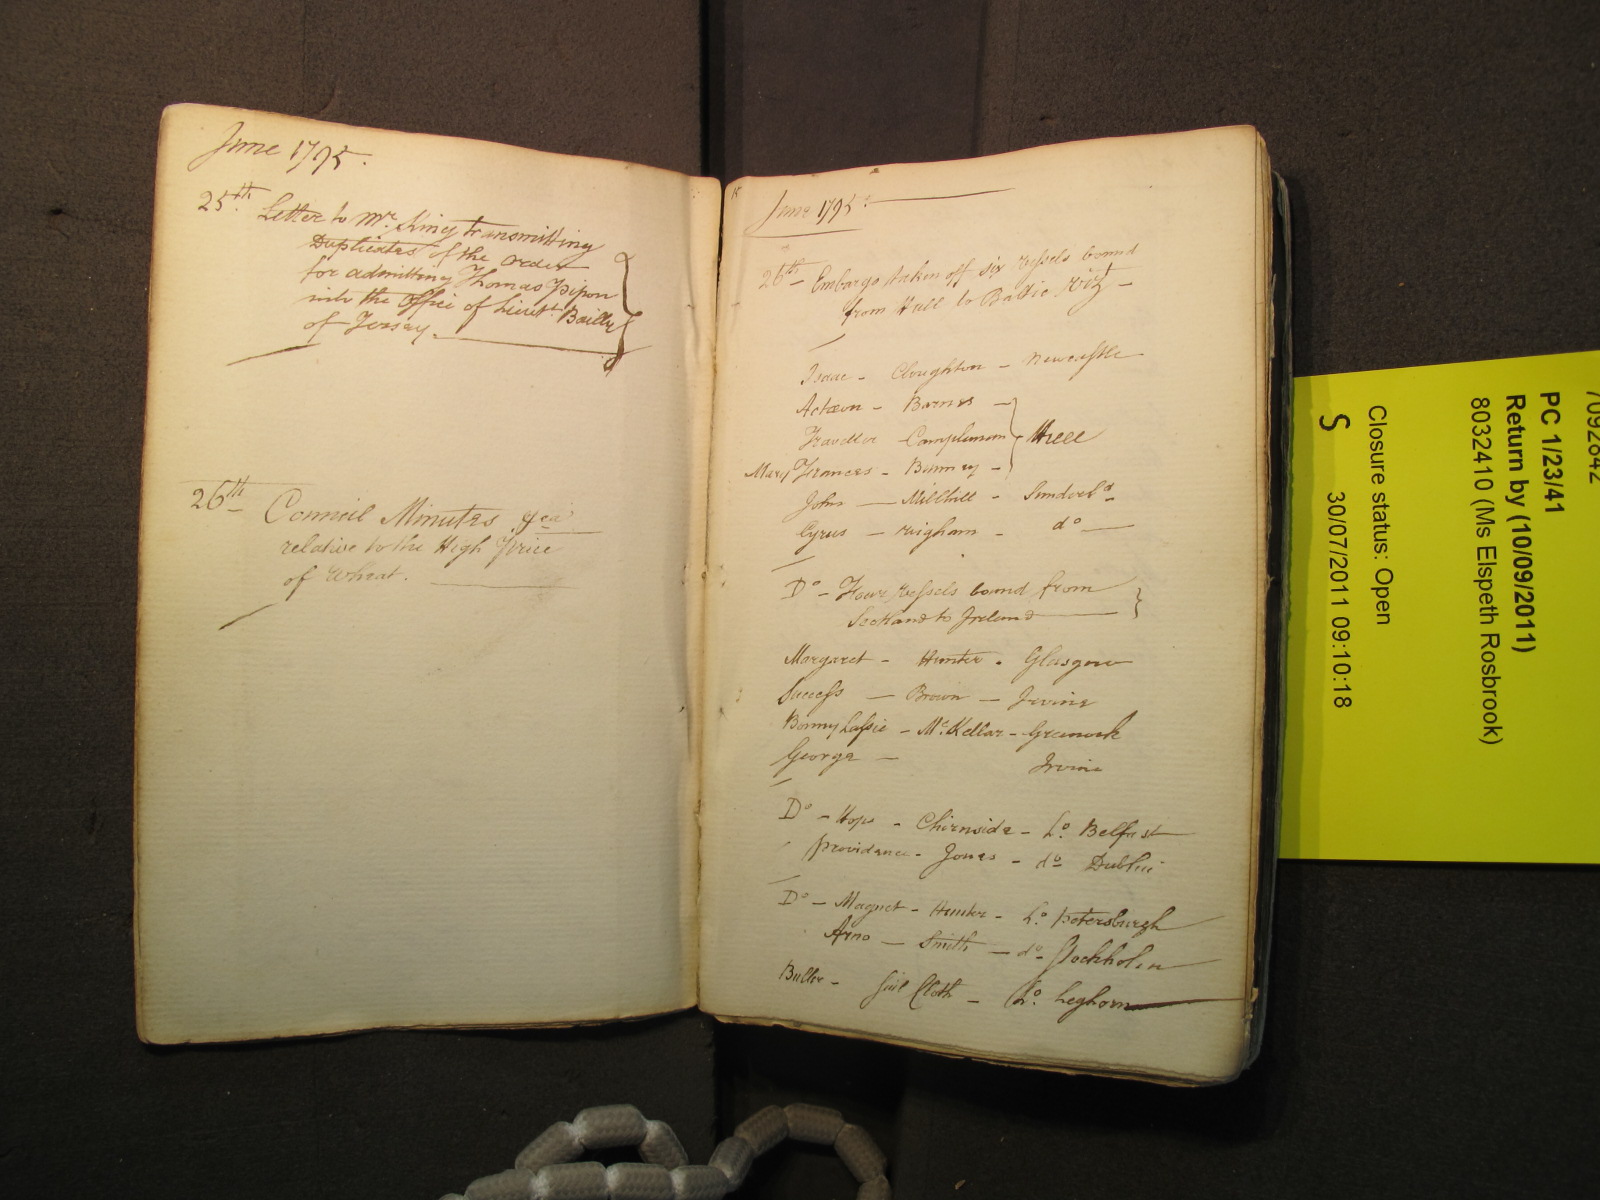 June 1795.
25th. Letter to Mr. King transmitting
Duplicates of the order
for admitting Thomas Pipon
into the Office of Lieut. Bailly
of Jersey.
26th Council Minutes
relative to the High Price
of Wheat.
June 1795.
26th Embargo taken off six Vessels bound
from Hull to Baltic Vizt
Isaac - Cloughton - Newcastle
Actæon - Barnes -
Traveller - Campleman - Hull
Mary Frances - Bunney -
John - Millhill - Sunderld.
Cyrus - do
Do - Four Vessels bound from
Scotland to Ireland
Margaret - Hunter - Glasgow
Success - Brown - Irvine
Bonny Lassie - McKellar - Greenock
George - Irvine
Do - Hope - Chirnside - Lo. Belfast
Providence - Jones - do Dublin
Do - Magnet - Hunter - Lo. Petersburgh
Arno - Smith - do. Stockholm
Buller - Sail Cloth - Lo. Leghorn
7092842
PC 1/23/41
Return by (10/09/2011)
8032410 (Ms Elspeth Rosbrook)
Closure status: Open
S 30/07/2011 09:10:18